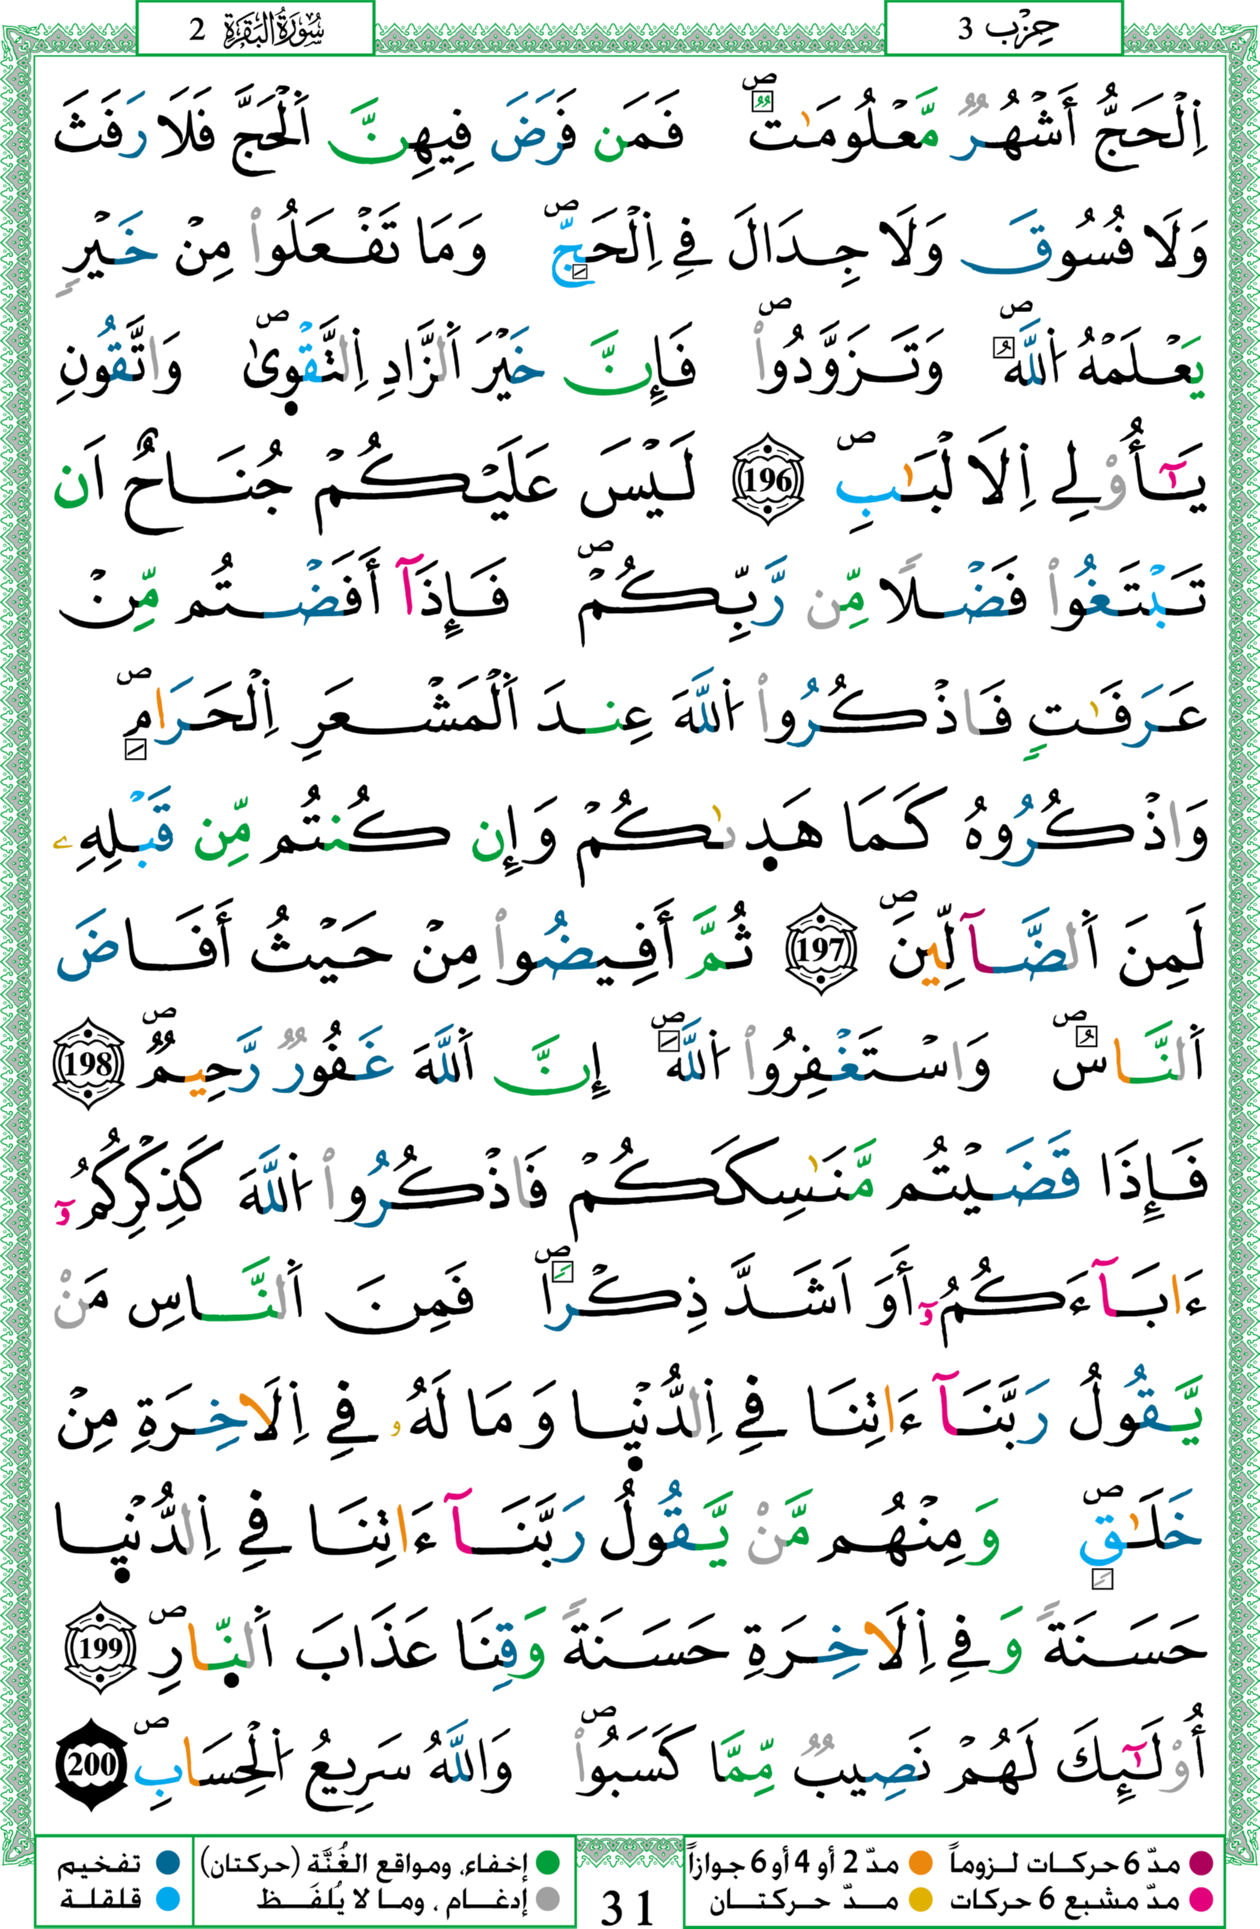 سُورَةُ البَقَرَةِ 2
حِزْب 3
اِ۬لْحَجُّ أَشْهُرٌ مَّعْلُومَٰتٌ فَمَن فَرَضَ فِيهِنَّ اَ۬لْحَجَّ فَلَا رَفَثَ
وَلَا فُسُوقَ وَلَا جِدَالَ فِے اِ۬لْحَجِّ وَمَا تَفْعَلُواْ مِنْ خَيْرٍ
يَعْلَمْهُ اُ۬للَّهُ وَتَزَوَّدُواْ فَإِنَّ خَيْرَ اَ۬لزَّادِ اِ۬لتَّقْوٜيٰ وَاتَّقُونِ
يَٰٓأُوْلِے اِ۬لَالْبَٰبِ 196 لَيْسَ عَلَيْكُمْ جُنَاحٌ اَن
تَبْتَغُواْ فَضْلًا مِّن رَّبِّكُمْ فَإِذَآ أَفَضْتُم مِّنْ
عَرَفَٰتٍ فَاذْكُرُواْ اُ۬للَّهَ عِندَ اَ۬لْمَشْعَرِ اِ۬لْحَرَامِ
وَاذْكُرُوهُ كَمَا هَدٜىٰكُمْ وَإِن كُنتُم مِّن قَبْلِهِۦ
لَمِنَ اَ۬لضَّآلِّينَ 197 ثُمَّ أَفِيضُواْ مِنْ حَيْثُ أَفَاضَ
اَ۬لنَّاسُ وَاسْتَغْفِرُواْ اُ۬للَّهَ إِنَّ اَ۬للَّهَ غَفُورٌ رَّحِيمٌ 198
فَإِذَا قَضَيْتُم مَّنَٰسِكَكُمْ فَاذْكُرُواْ اُ۬للَّهَ كَذِكْرِكُمُۥٓ
ءَابَآءَكُمُۥٓ أَوَ اَشَدَّ ذِكْرًا فَمِنَ اَ۬لنَّاسِ مَنْ
يَّقُولُ رَبَّنَآ ءَاتِنَا فِے اِ۬لدُّنْيٜا وَمَا لَهُۥ فِے اِ۬لَاخِرَةِ مِنْ
خَلَٰقٍ وَمِنْهُم مَّنْ يَّقُولُ رَبَّنَآ ءَاتِنَا فِے اِ۬لدُّنْيٜا
حَسَنَةً وَفِے اِ۬لَاخِرَةِ حَسَنَةً وَقِنَا عَذَابَ اَ۬لنّٜارِ 199
أُوْلَٰٓئِكَ لَهُمْ نَصِيبٌ مِّمَّا كَسَبُواْ وَاللَّهُ سَرِيعُ اُ۬لْحِسَابِ 200
مدّ 6 حركات لـزوماً مدّ 2 أو 4 أو 6 جوازاً
مدّ مشبع 6 حركات مــدّ حــركـتــان
31
إخفاء، ومواقع الغُنَّة (حركتان) تفخيم
إدغـام ، ومـا لا يُلفَـظ قلقلة